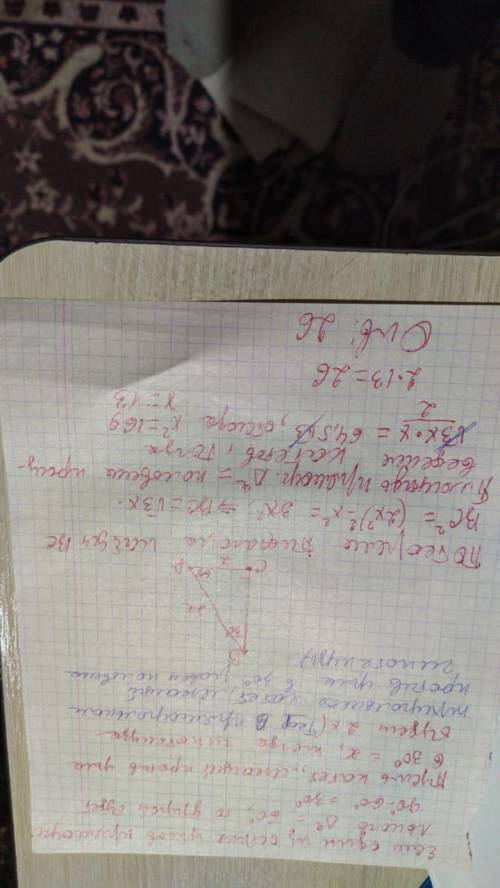 Если один из острых углов прямоуг
Δ = 60°, то другой будет
90°-60° = 30°
Пусть катет, лежащий против угла
в 30° = x, тогда гипотенуза
будет 2x (В прямоугольном
треугольнике катет, лежащий
против угла в 30° равен половине
гипотенузы)
B
30°
2x
60°
A
x
C
По теореме Пифагора найдём BC
BC² = (2x)² - x² = 3x² ⇒ BC = √3x.
Площадь прямоуг. Δ = половине произ-
ведения катетов, тогда
√3x·x / 2 = 84,5√3, отсюда x² = 169
x = 13
2·13 = 26
Отв: 26